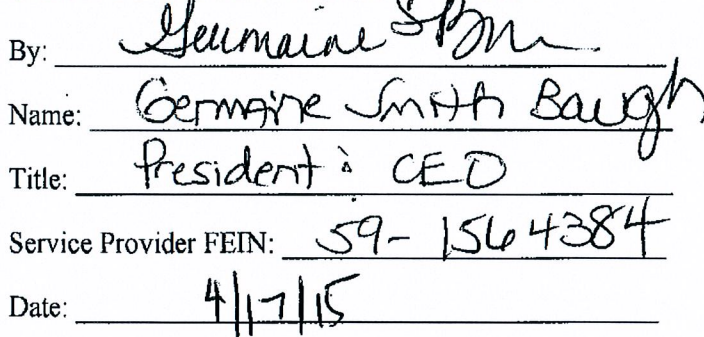 By: Germaine
Name: Germaine Smith Baugh
Title: President & CEO
Service Provider FEIN: 59-1564384
Date: 4/17/15